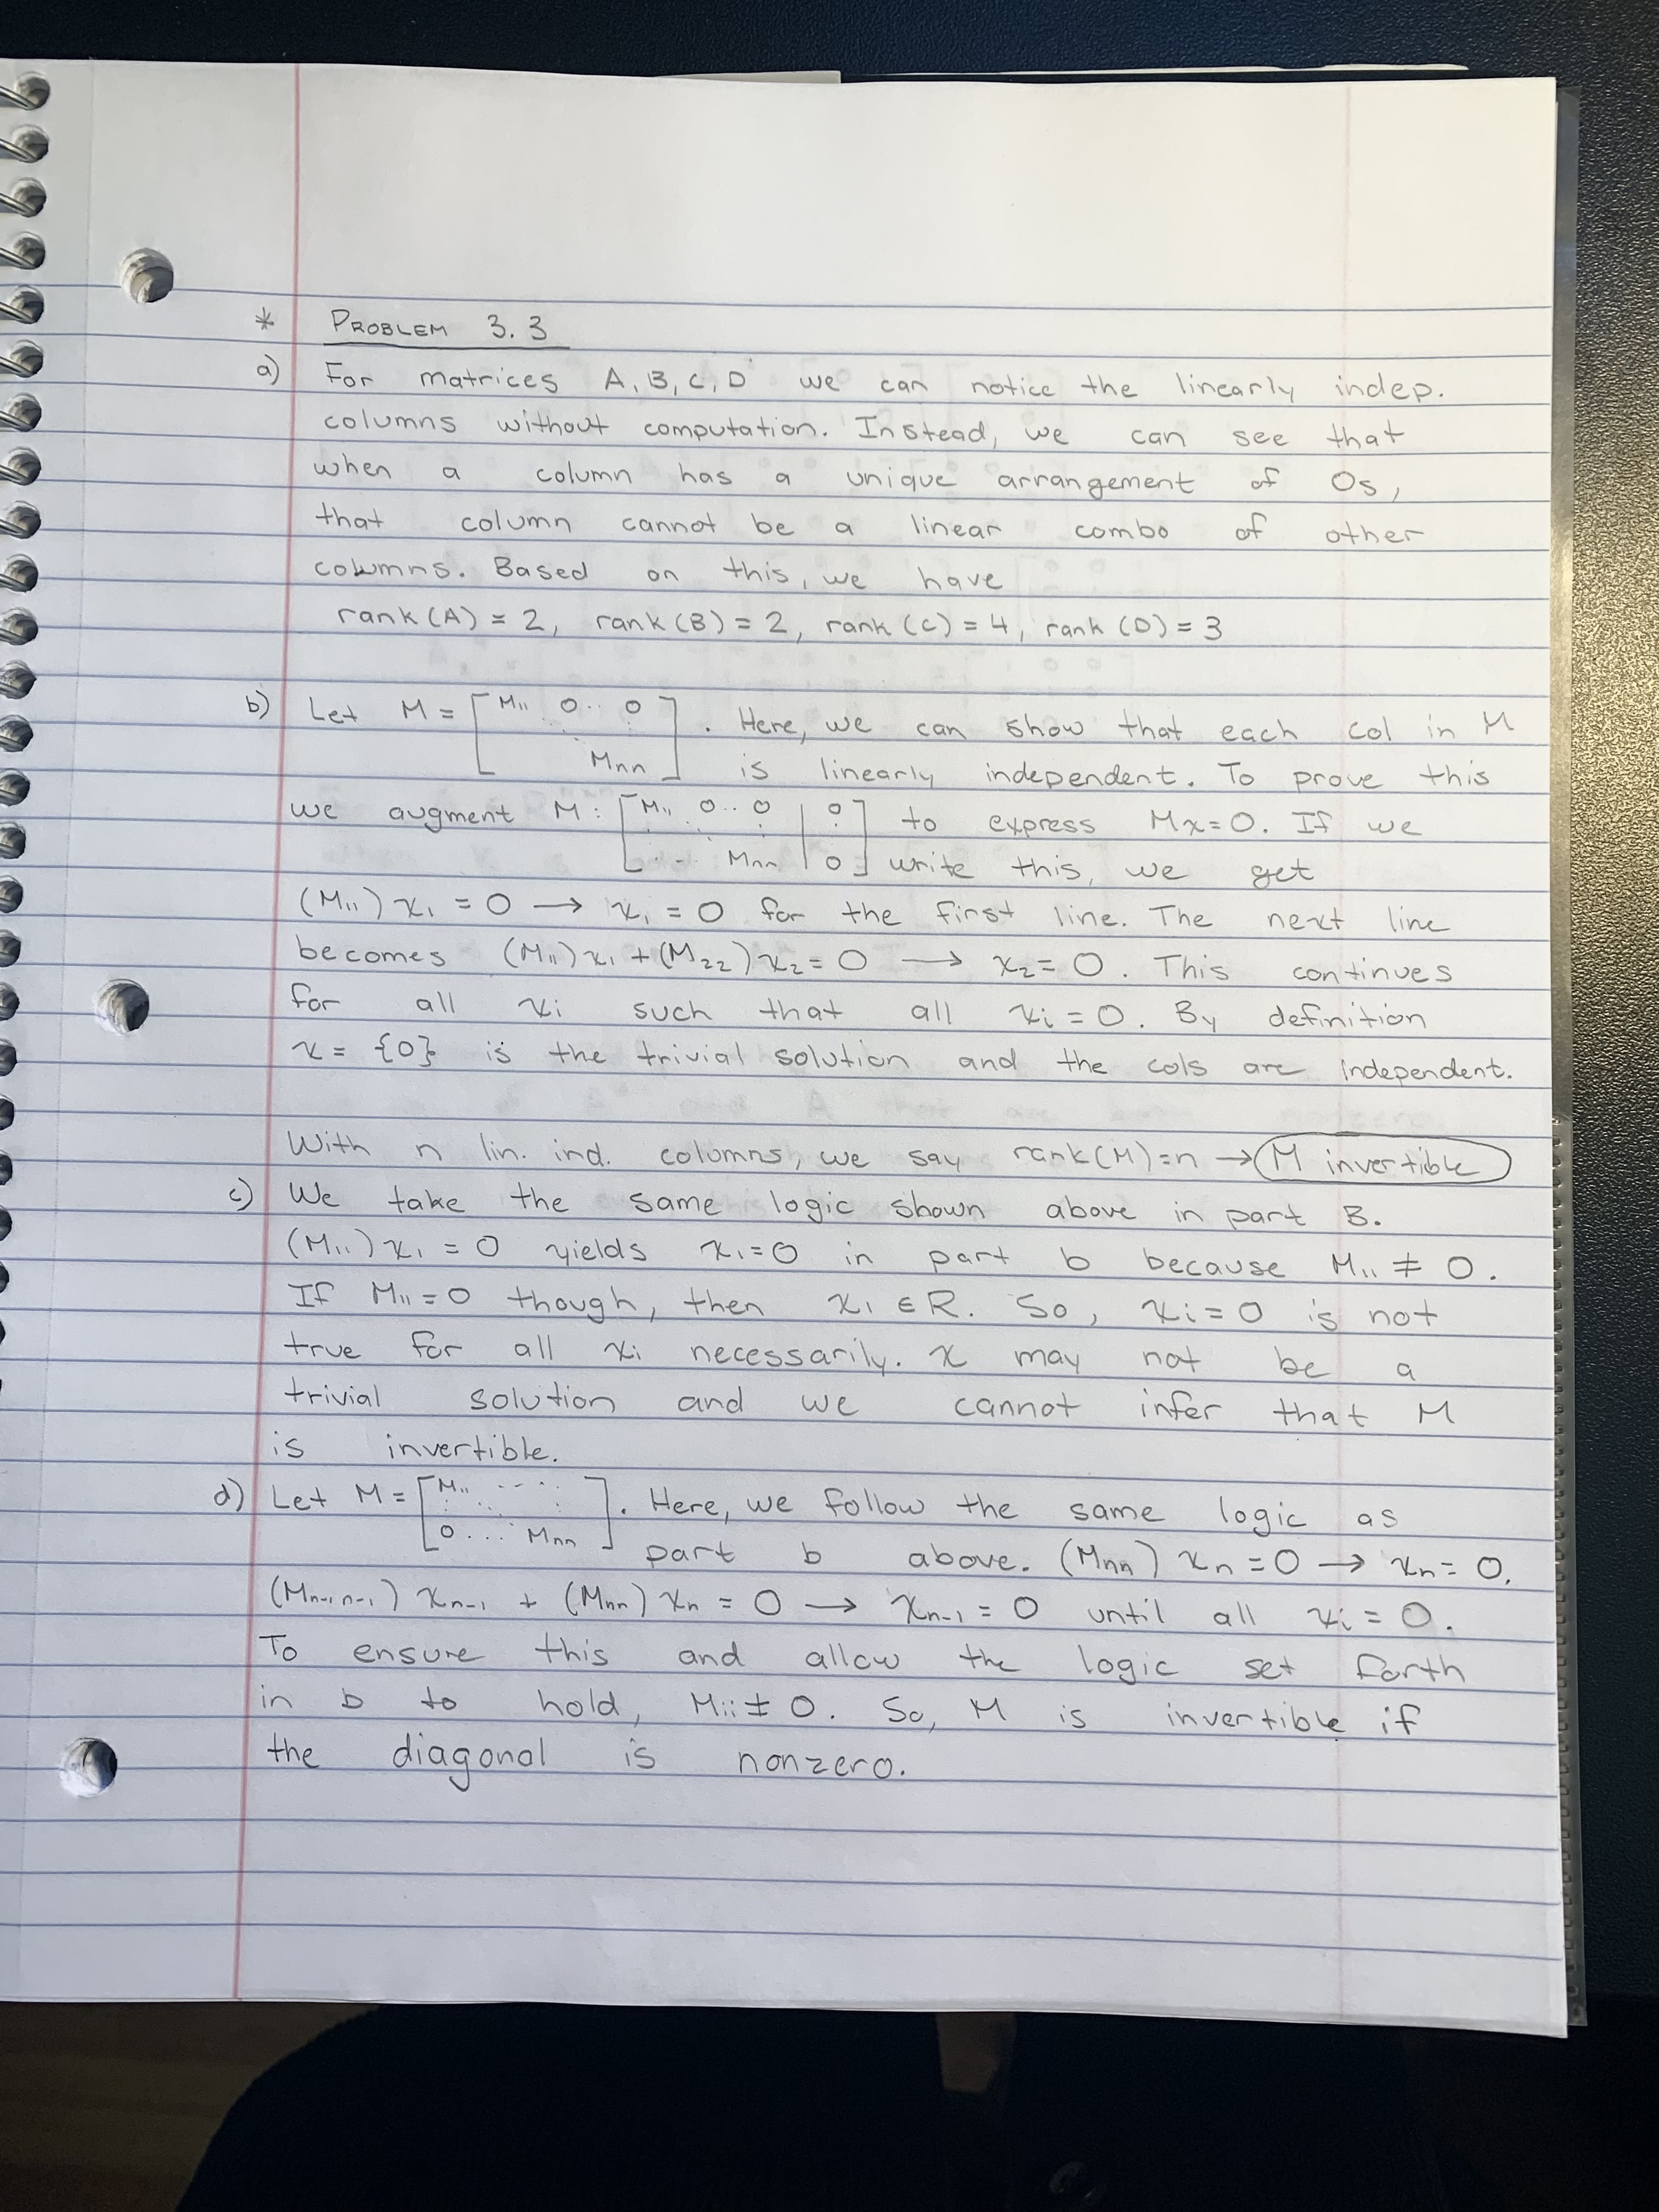 * PROBLEM 3.3
a) For matrices A, B, C, D we can notice the linearly indep.
columns without computation. Instead, we can see that
when a column has a unique arrangement of 0s,
that column cannot be a linear combo of other
columns. Based on this, we have
rank(A) = 2, rank(B) = 2, rank(C) = 4, rank(D) = 3
b) Let M = [M₁₁ 0.. 0 ⋱ ⋮ Mnn]. Here, we can show that each col in M
is linearly independent. To prove this
we augment M: [M₁₁ 0..0 ⋱ ⋮ ... Mnn | 0 ⋮ 0] to express Mx=0. If we
write this, we get
(M₁₁)x₁ = 0 → x₁ = 0 for the first line. The next line
becomes (M₁₁)x₁ + (M₂₂)x₂ = 0 → x₂ = 0. This continues
for all xi such that all xi = 0. By definition
x = {0} is the trivial solution and the cols are independent.
With n lin. ind. columns, we say rank(M)=n → M invertible
c) We take the same logic shown above in part B.
(M₁₁)x₁ = 0 yields x₁=0 in part b because M₁₁ ≠ 0.
If M₁₁=0 though, then x₁ ∈ R. So, xi=0 is not
true for all xi necessarily. x may not be a
trivial solution and we cannot infer that M
is invertible.
d) Let M = [M₁₁ ... ⋮ ⋱ ⋮ 0 ... Mnn]. Here, we follow the same logic as
part b above. (Mnn) xn = 0 → xn = 0.
(Mn-1n-1) xn-1 + (Mnn) xn = 0 → xn-1 = 0 until all xi = 0.
To ensure this and allow the logic set forth
in b to hold, Mii ≠ 0. So, M is invertible if
the diagonal is nonzero.